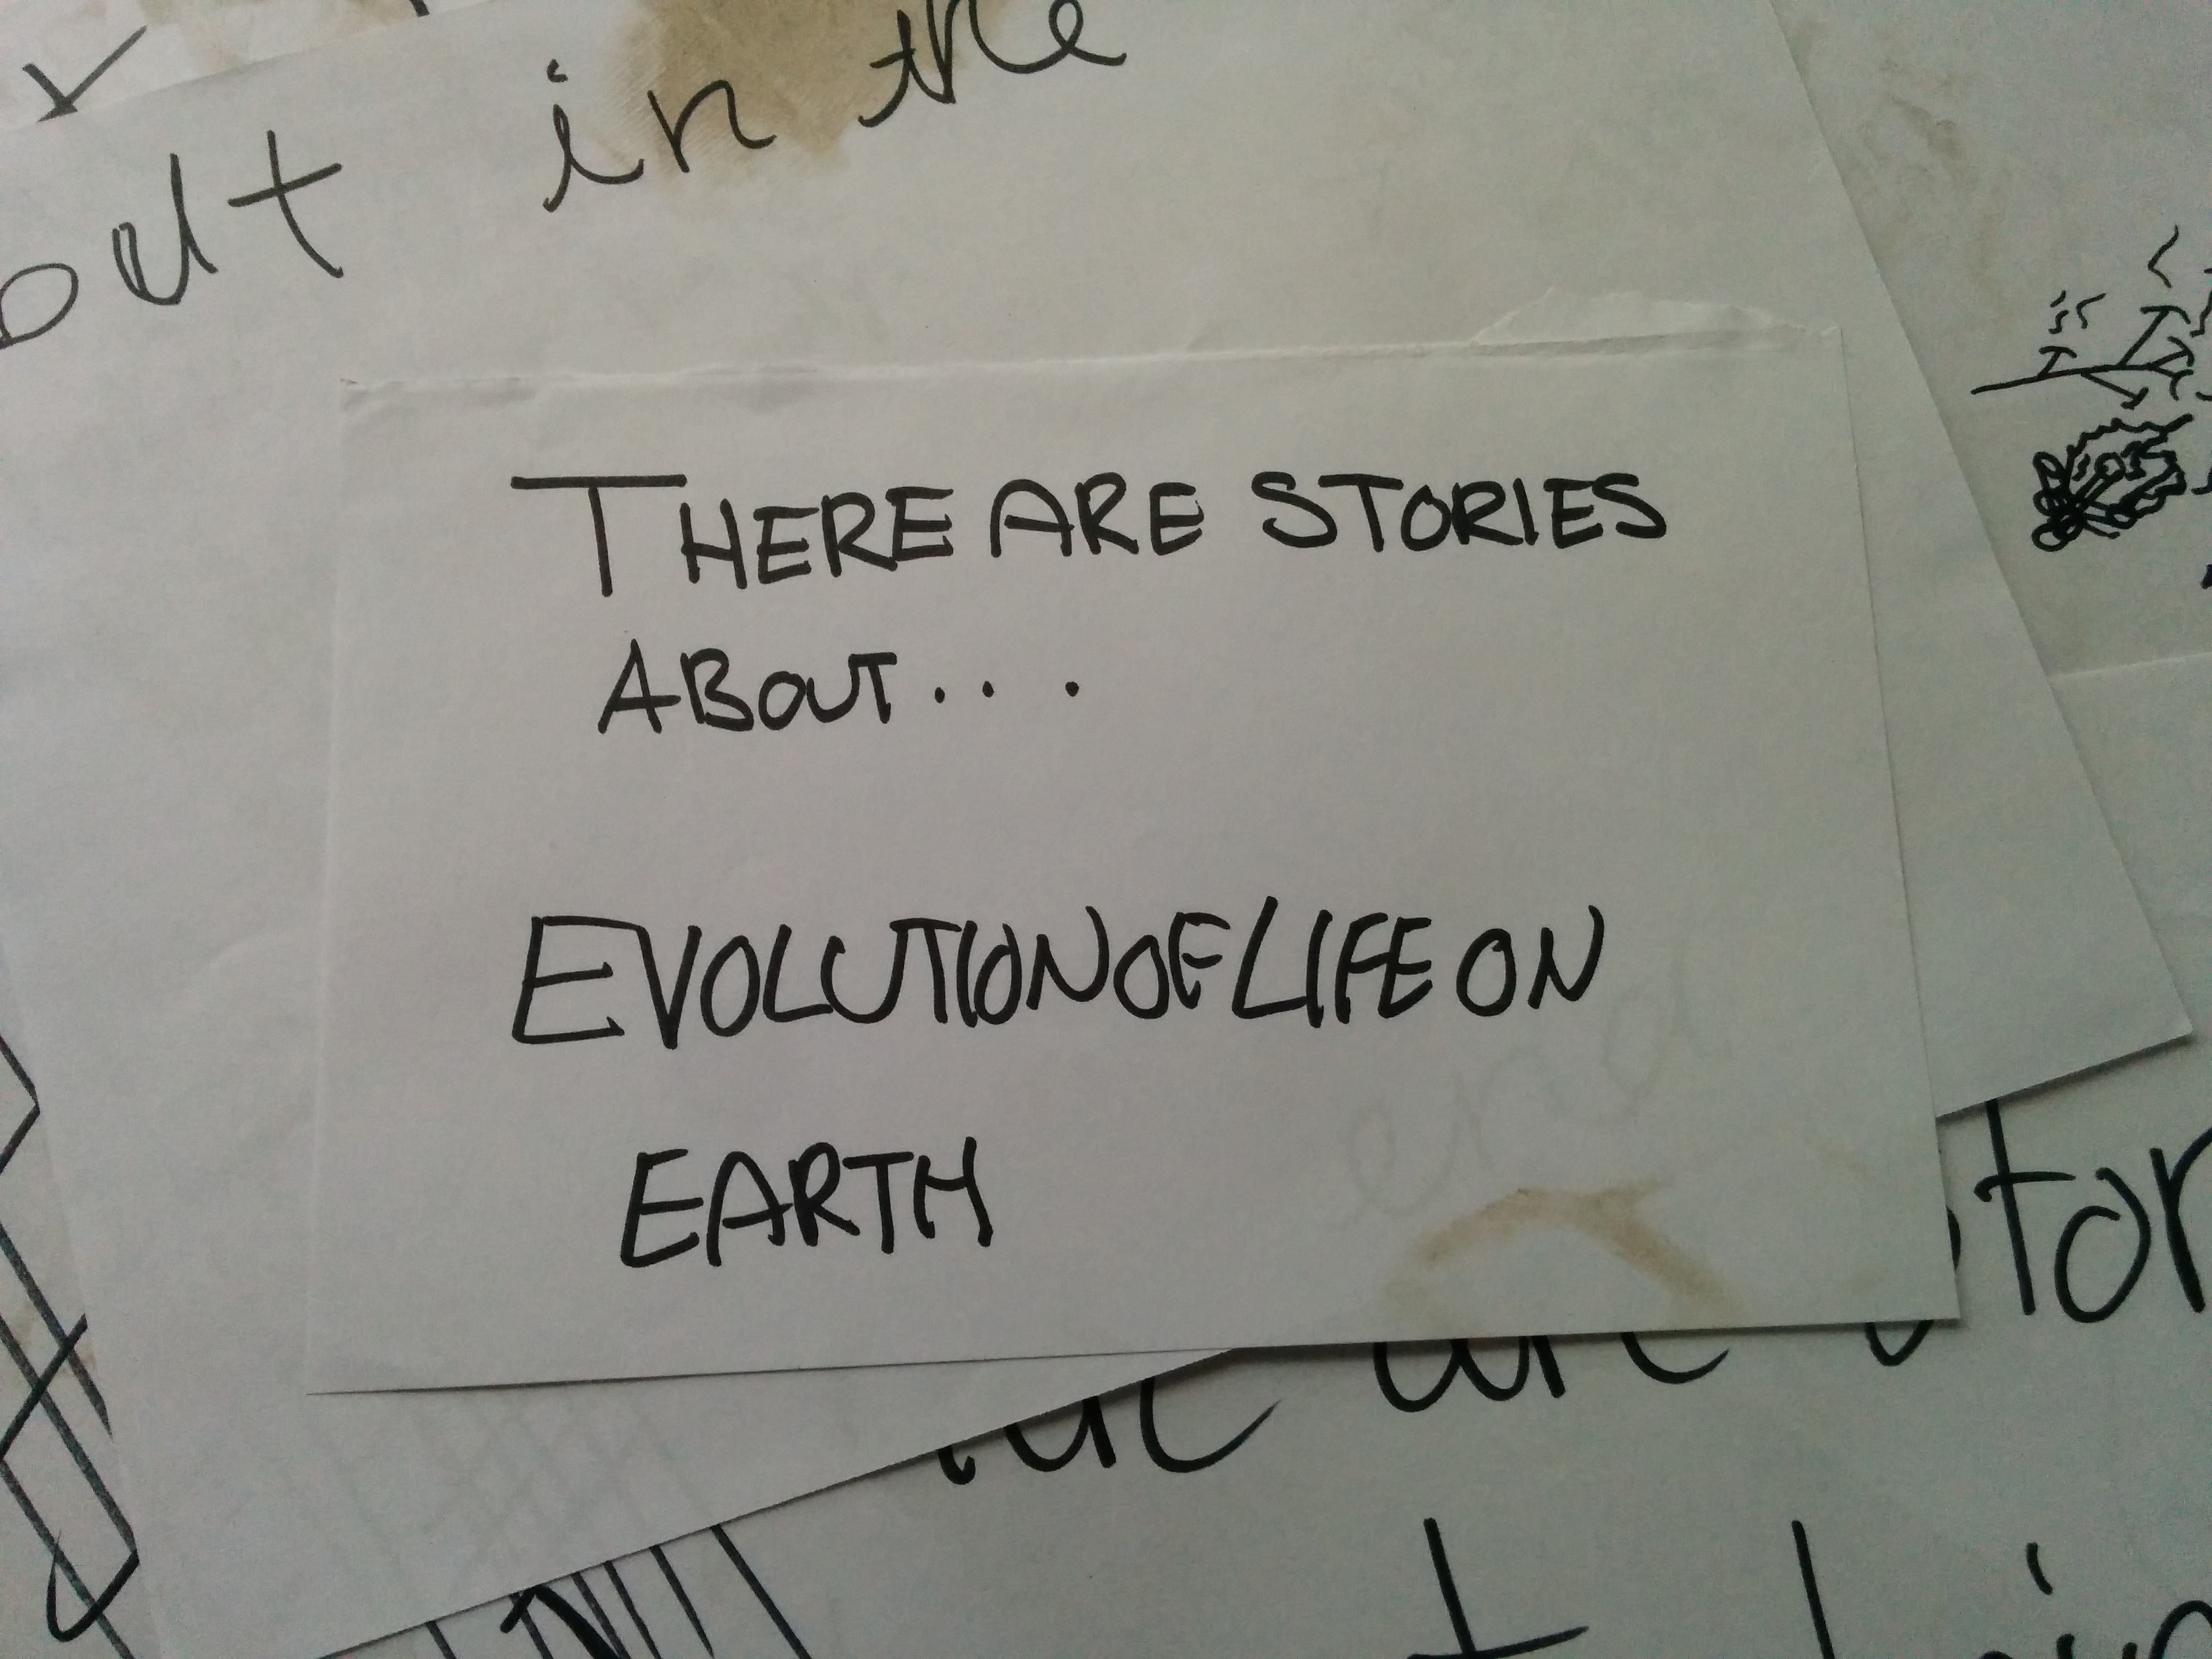 out in the
THERE ARE STORIES
ABOUT...
EVOLUTION OF LIFE ON
EARTH
end